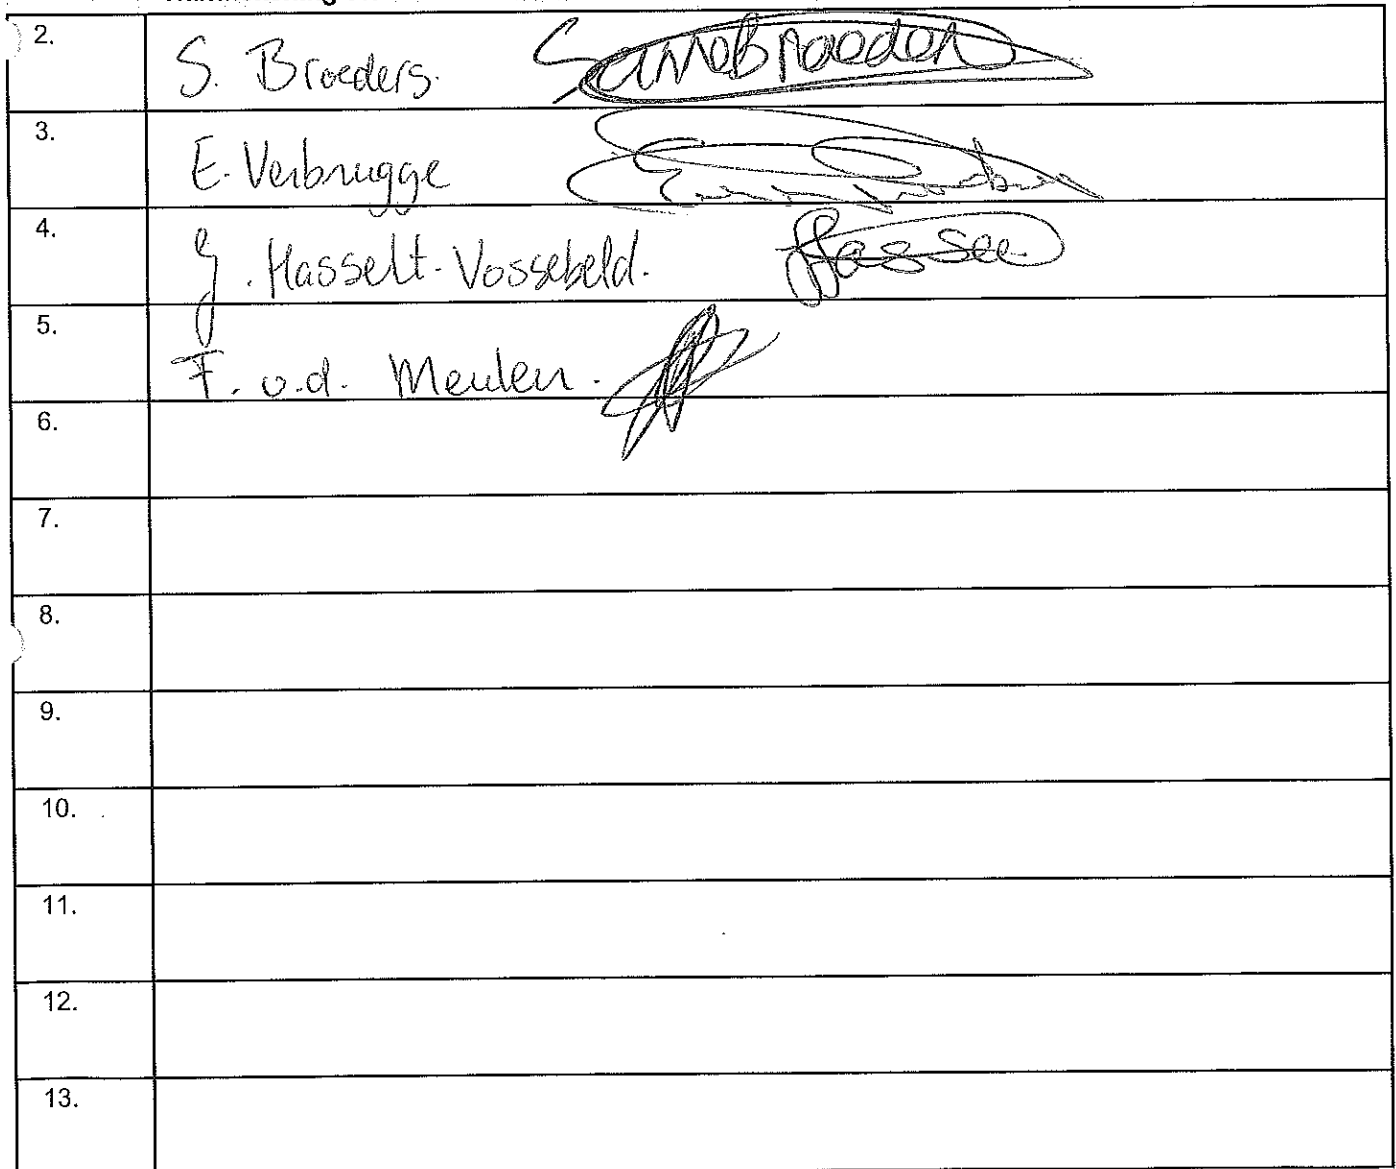 2. S. Broeders. Sanne Broeders
3. E. Verbrugge
4. G. Hasselt-Vossebeld.
5. F. v.d. Meulen.
6.
7.
8.
9.
10.
11.
12.
13.